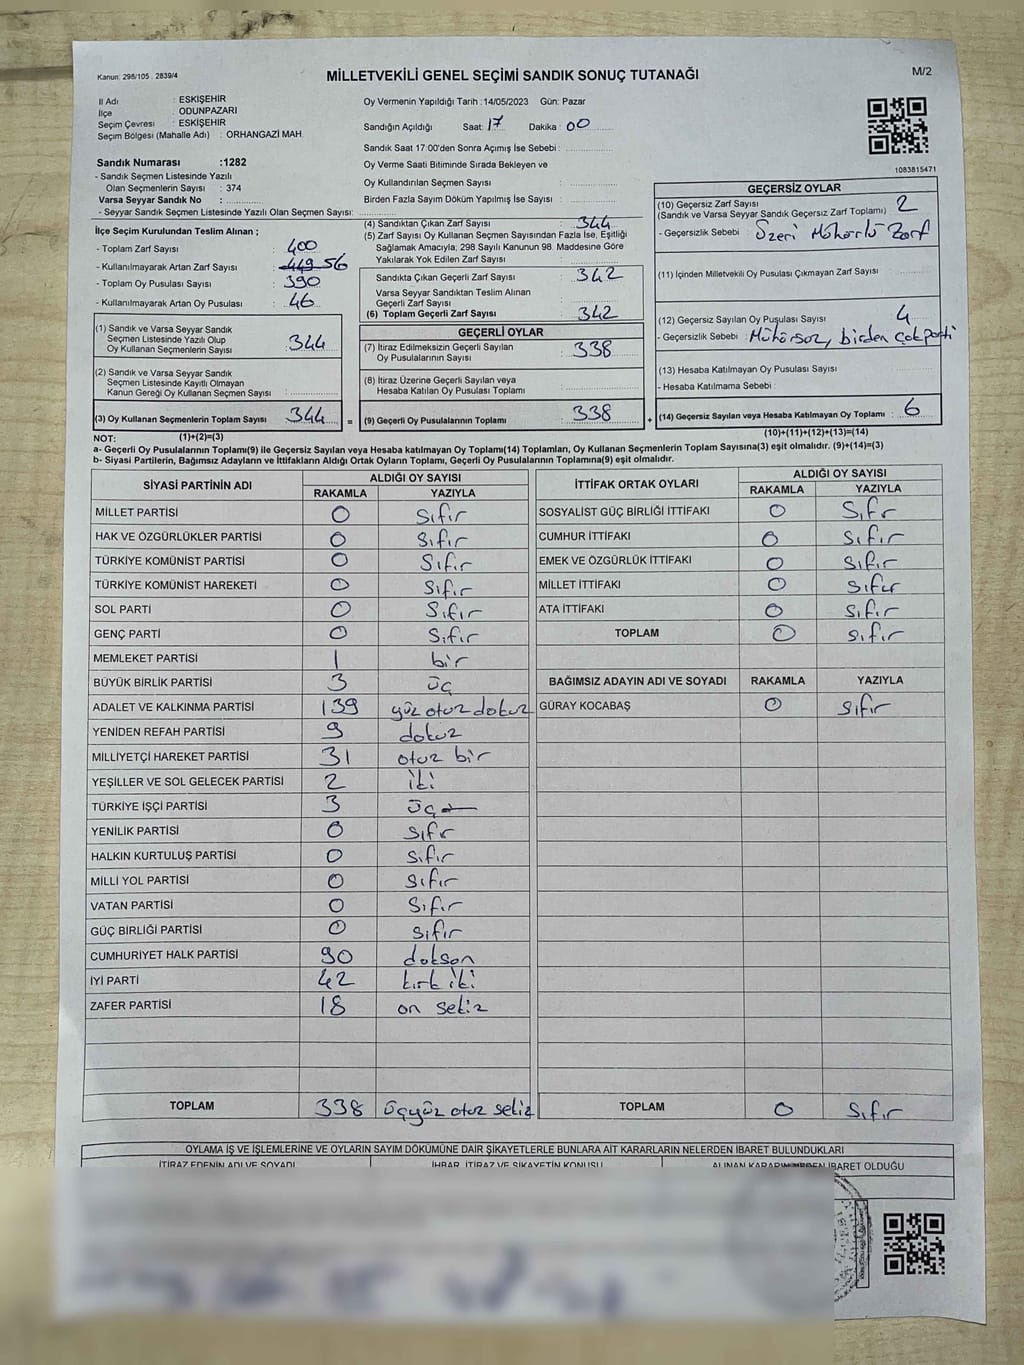 Kanun: 298/105 . 2839/4
MİLLETVEKİLİ GENEL SEÇİMİ SANDIK SONUÇ TUTANAĞI
M/2
İl Adı : ESKİŞEHİR
İlçe : ODUNPAZARI
Seçim Çevresi : ESKİŞEHİR
Seçim Bölgesi (Mahalle Adı) : ORHANGAZİ MAH.
Oy Vermenin Yapıldığı Tarih : 14/05/2023 Gün: Pazar
Sandığın Açıldığı Saat: 17 Dakika : 00
Sandık Saat 17:00'den Sonra Açımış İse Sebebi :
Oy Verme Saati Bitiminde Sırada Bekleyen ve
Oy Kullandırılan Seçmen Sayısı :
Birden Fazla Sayım Döküm Yapılmış İse Sayısı :
1083815471
Sandık Numarası :1282
- Sandık Seçmen Listesinde Yazılı
Olan Seçmenlerin Sayısı : 374
Varsa Seyyar Sandık No :
- Seyyar Sandık Seçmen Listesinde Yazılı Olan Seçmen Sayısı:
İlçe Seçim Kurulundan Teslim Alınan ;
- Toplam Zarf Sayısı : 400
- Kullanılmayarak Artan Zarf Sayısı : 56
- Toplam Oy Pusulası Sayısı : 390
- Kullanılmayarak Artan Oy Pusulası : 46
(1) Sandık ve Varsa Seyyar Sandık
Seçmen Listesinde Yazılı Olup
Oy Kullanan Seçmenlerin Sayısı : 344
(2) Sandık ve Varsa Seyyar Sandık
Seçmen Listesinde Kayıtlı Olmayan
Kanun Gereği Oy Kullanan Seçmen Sayısı :
(3) Oy Kullanan Seçmenlerin Toplam Sayısı : 344
(4) Sandıktan Çıkan Zarf Sayısı : 344
(5) Zarf Sayısı Oy Kullanan Seçmen Sayısından Fazla İse, Eşitliği
Sağlamak Amacıyla; 298 Sayılı Kanunun 98. Maddesine Göre
Yakılarak Yok Edilen Zarf Sayısı :
Sandıkta Çıkan Geçerli Zarf Sayısı : 342
Varsa Seyyar Sandıktan Teslim Alınan
Geçerli Zarf Sayısı :
(6) Toplam Geçerli Zarf Sayısı : 342
GEÇERLİ OYLAR
(7) İtiraz Edilmeksizin Geçerli Sayılan
Oy Pusulalarının Sayısı : 338
(8) İtiraz Üzerine Geçerli Sayılan veya
Hesaba Katılan Oy Pusulası Toplamı :
= (9) Geçerli Oy Pusulalarının Toplamı : 338
GEÇERSİZ OYLAR
(10) Geçersiz Zarf Sayısı
(Sandık ve Varsa Seyyar Sandık Geçersiz Zarf Toplamı) : 2
- Geçersizlik Sebebi : Üzeri Mühürlü Zarf
(11) İçinden Milletvekili Oy Pusulası Çıkmayan Zarf Sayısı :
(12) Geçersiz Sayılan Oy Pusulası Sayısı : 4
- Geçersizlik Sebebi : Mühürsüz, birden çok parti
(13) Hesaba Katılmayan Oy Pusulası Sayısı :
- Hesaba Katılmama Sebebi :
+ (14) Geçersiz Sayılan veya Hesaba Katılmayan Oy Toplamı : 6
NOT: (1)+(2)=(3)
(10)+(11)+(12)+(13)=(14)
a- Geçerli Oy Pusulalarının Toplamı(9) ile Geçersiz Sayılan veya Hesaba katılmayan Oy Toplamı(14) Toplamları, Oy Kullanan Seçmenlerin Toplam Sayısına(3) eşit olmalıdır. (9)+(14)=(3)
b- Siyasi Partilerin, Bağımsız Adayların ve İttifakların Aldığı Ortak Oyların Toplamı, Geçerli Oy Pusulalarının Toplamına(9) eşit olmalıdır.
SİYASİ PARTİNİN ADI ALDIĞI OY SAYISI
RAKAMLA YAZIYLA
MİLLET PARTİSİ 0 Sıfır
HAK VE ÖZGÜRLÜKLER PARTİSİ 0 Sıfır
TÜRKİYE KOMÜNİST PARTİSİ 0 Sıfır
TÜRKİYE KOMÜNİST HAREKETİ 0 Sıfır
SOL PARTİ 0 Sıfır
GENÇ PARTİ 0 Sıfır
MEMLEKET PARTİSİ 1 bir
BÜYÜK BİRLİK PARTİSİ 3 üç
ADALET VE KALKINMA PARTİSİ 139 yüz otuz dokuz
YENİDEN REFAH PARTİSİ 9 dokuz
MİLLİYETÇİ HAREKET PARTİSİ 31 otuz bir
YEŞİLLER VE SOL GELECEK PARTİSİ 2 iki
TÜRKİYE İŞÇİ PARTİSİ 3 üç
YENİLİK PARTİSİ 0 Sıfır
HALKIN KURTULUŞ PARTİSİ 0 Sıfır
MİLLİ YOL PARTİSİ 0 Sıfır
VATAN PARTİSİ 0 Sıfır
GÜÇ BİRLİĞİ PARTİSİ 0 Sıfır
CUMHURİYET HALK PARTİSİ 90 doksan
İYİ PARTİ 42 kırk iki
ZAFER PARTİSİ 18 on sekiz
TOPLAM 338 üçyüz otuz sekiz
İTTİFAK ORTAK OYLARI ALDIĞI OY SAYISI
RAKAMLA YAZIYLA
SOSYALİST GÜÇ BİRLİĞİ İTTİFAKI 0 Sıfır
CUMHUR İTTİFAKI 0 Sıfır
EMEK VE ÖZGÜRLÜK İTTİFAKI 0 Sıfır
MİLLET İTTİFAKI 0 Sıfır
ATA İTTİFAKI 0 Sıfır
TOPLAM 0 Sıfır
BAĞIMSIZ ADAYIN ADI VE SOYADI RAKAMLA YAZIYLA
GÜRAY KOCABAŞ 0 Sıfır
TOPLAM 0 Sıfır
OYLAMA İŞ VE İŞLEMLERİNE VE OYLARIN SAYIM DÖKÜMÜNE DAİR ŞİKAYETLERLE BUNLARA AİT KARARLARIN NELERDEN İBARET BULUNDUKLARI
İTİRAZ EDENİN ADI VE SOYADI İHBAR, İTİRAZ VE ŞİKAYETİN KONUSU ALINAN KARARIN NEDEN İBARET OLDUĞU